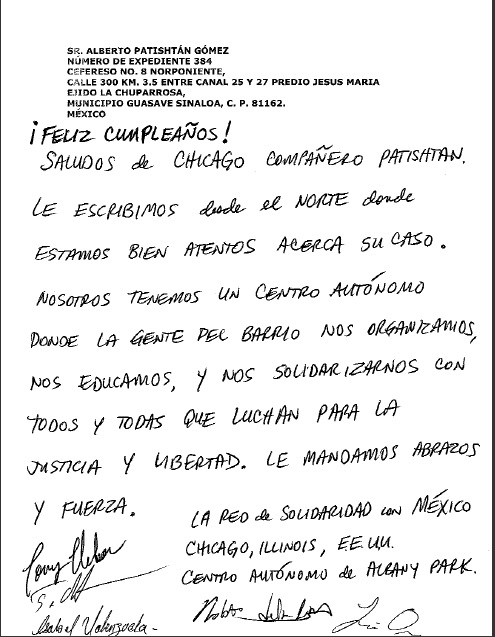 SR. ALBERTO PATISHTÁN GÓMEZ
NÚMERO DE EXPEDIENTE 384
CEFERESO NO. 8 NORPONIENTE,
CALLE 300 KM. 3.5 ENTRE CANAL 25 Y 27 PREDIO JESUS MARIA
EJIDO LA CHUPARROSA,
MUNICIPIO GUASAVE SINALOA, C. P. 81162.
MÉXICO
¡FELIZ CUMPLEAÑOS!
SALUDOS de CHICAGO COMPAÑERO PATISHTAN.
LE ESCRIBIMOS desde el NORTE donde
ESTAMOS BIEN ATENTOS ACERCA SU CASO.
NOSOTROS TENEMOS UN CENTRO AUTÓNOMO
DONDE LA GENTE DEL BARRIO NOS ORGANIZAMOS,
NOS EDUCAMOS, Y NOS SOLIDARIZARNOS CON
TODOS Y TODAS QUE LUCHAN PARA LA
JUSTICIA Y LIBERTAD. LE MANDAMOS ABRAZOS
Y FUERZA.
LA RED de SOLIDARIDAD con MÉXICO
CHICAGO, ILLINOIS, EE.UU.
CENTRO AUTÓNOMO de ALBANY PARK.
Isabel Valenzuela